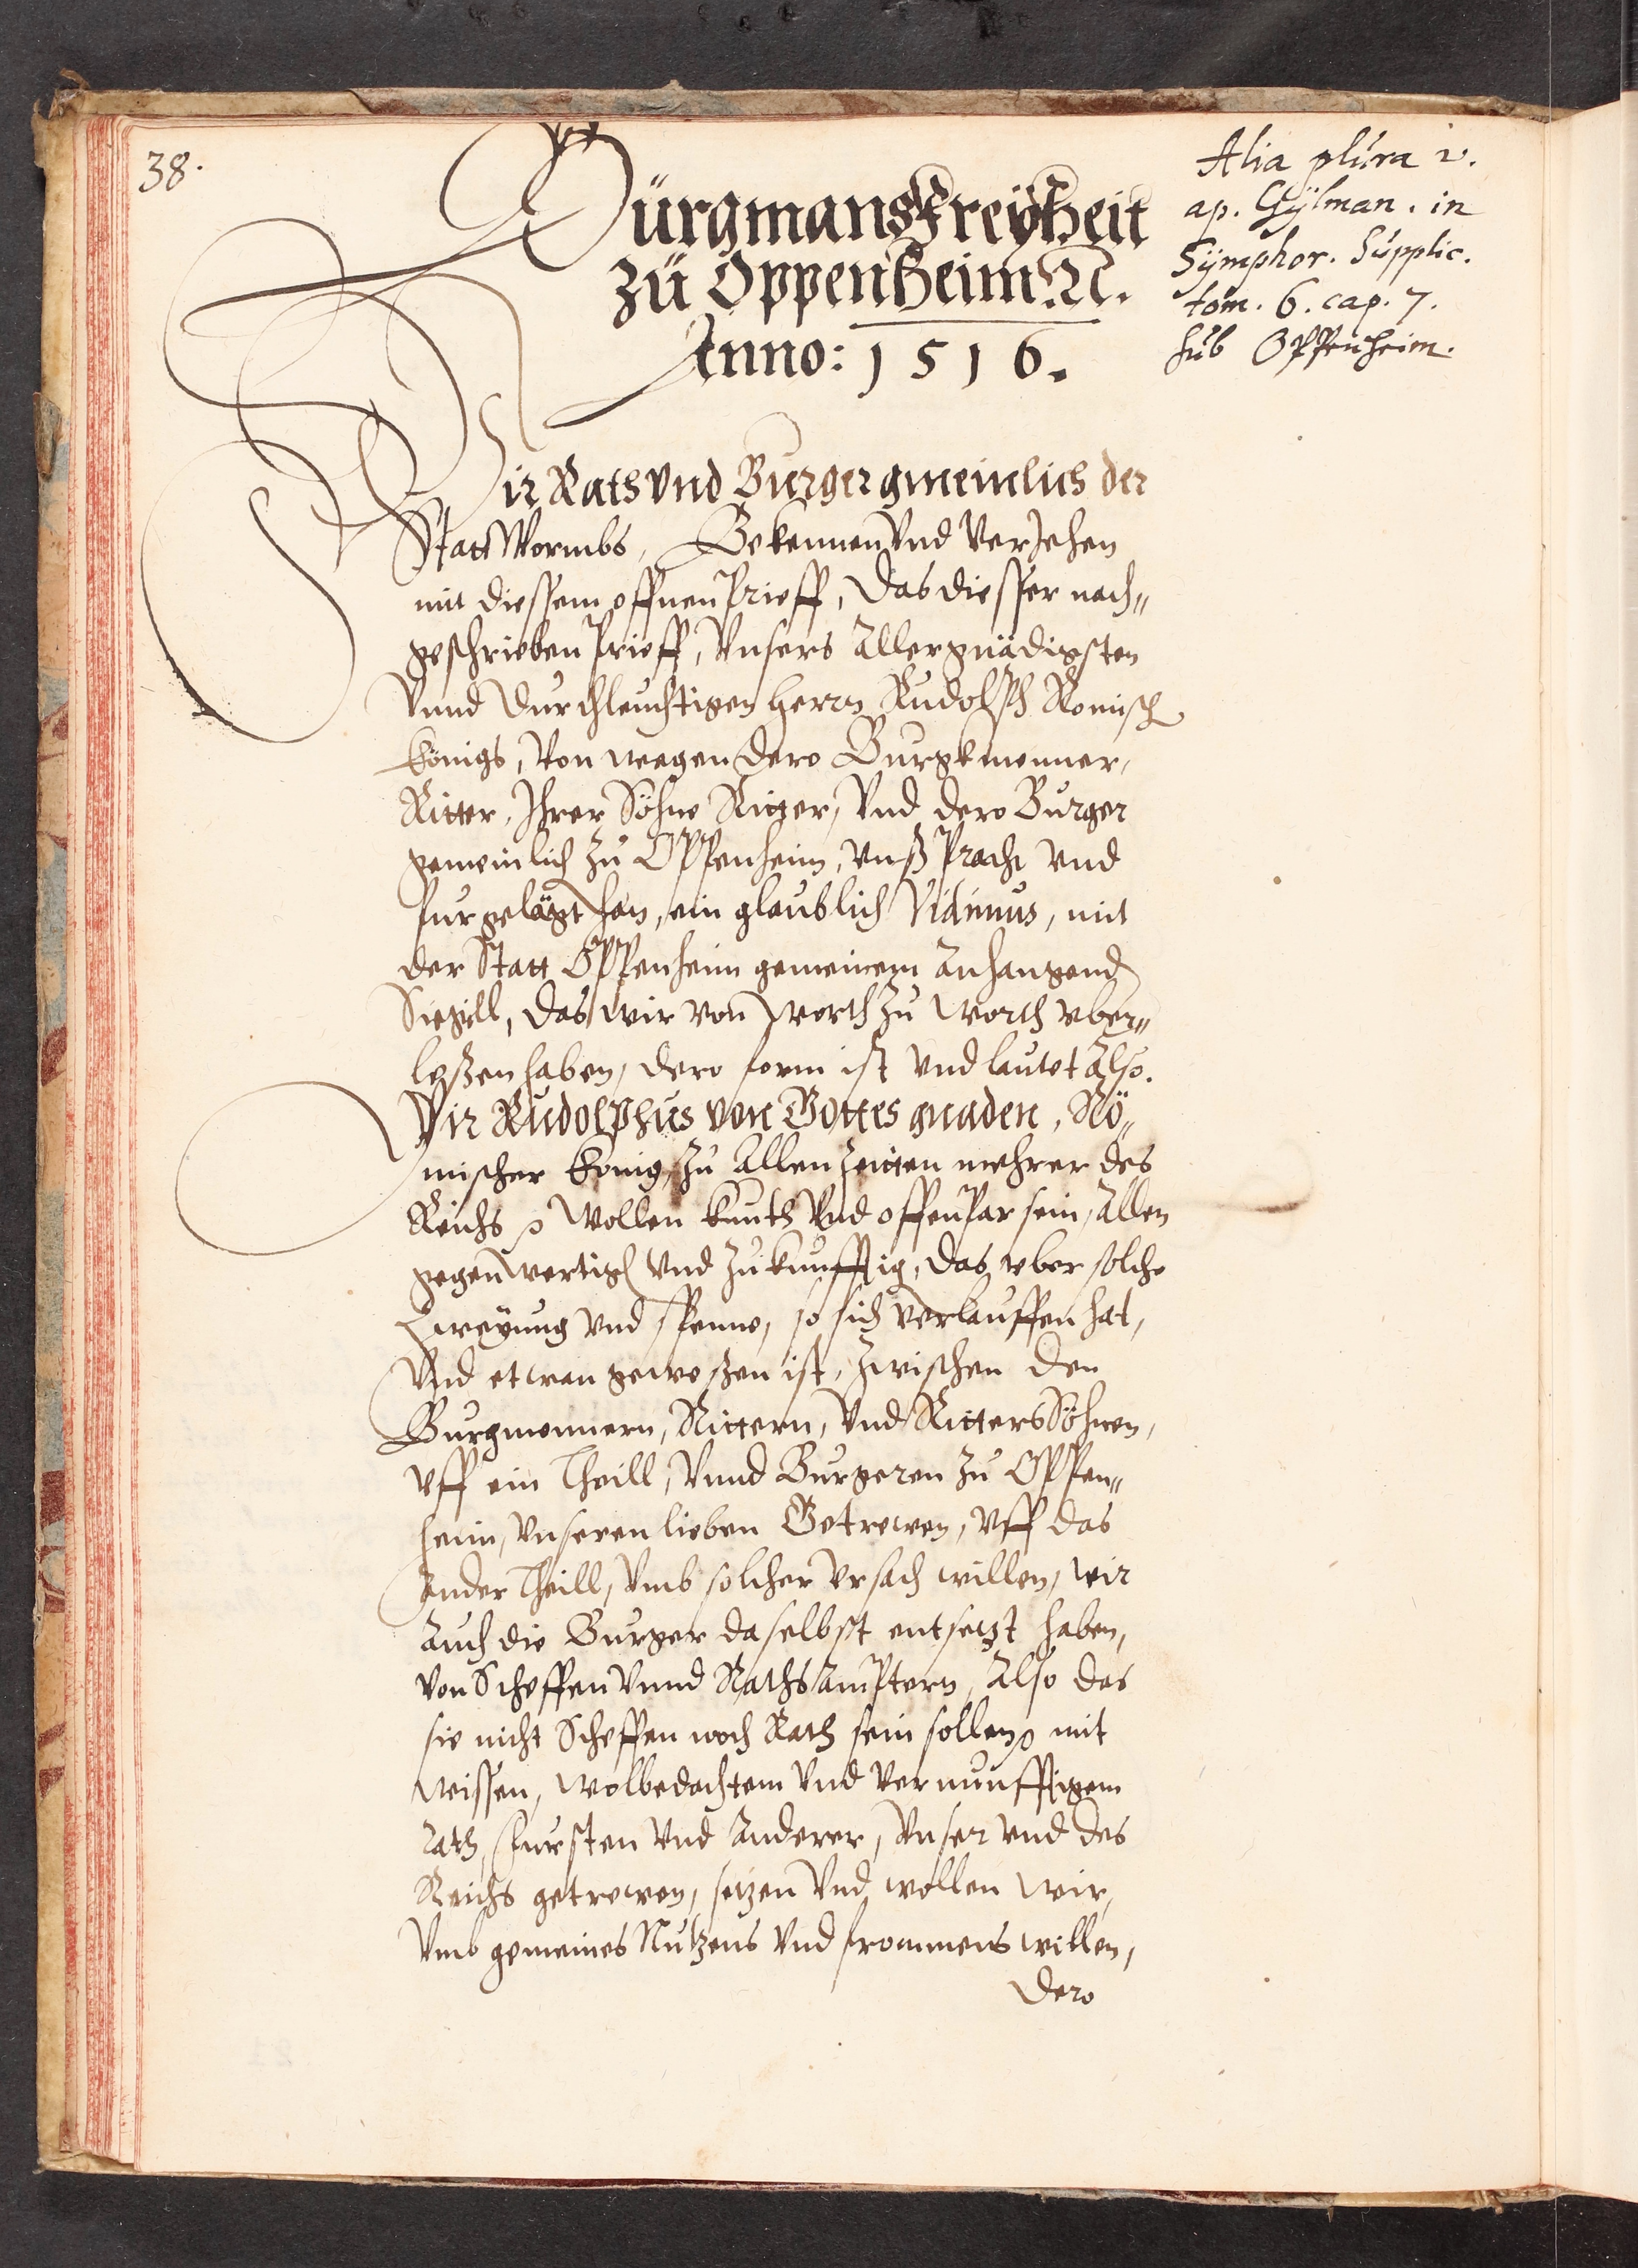 38.
Bürgmans Freÿheit
zü Oppenheim N.
Anno: 1516.
Alia plura v.
ap. Gÿlman. in
Sÿmphor. Supplic.
tom. 6. cap. 7.
sub Oppenheim.
Wir Rath vnd Burger gmeinlich der
Statt Wormbs, Bekennen vnd verJehen
mit diessem offnen Prieff, das diesser nach„
geschrieben Prieff, vnsers Allergnädigsten
vnnd Durchleuchtigen herrn Rudolph Romisch
Königs, von wegen dero Burgkmenner,
Ritter, Ihrer Söhne Ritter, vnd dero Burger
gemeinlich zu Oppenheim, vnß Pracht vnd
furgelägt han, ein glaublich Vidimus, mit
der Statt Oppenheim gemeinem Anhangend
Siegill, das wir von worth zu worth vber„
leßen haben, dero form ist vnd lautet Also.
Wir Rudolphus von Gottes gnaden, Rö„
mischer König, zu Allen Zeitten mehrer des
Reichs wollen kunth vnd offenPar sein, Allen
gegenwertigl vnd Zukunfftig, das vber solche
Zweyung vnd spenne, so sich verlauffen hat,
vnd etwan geweßen ist, zwischen den
Burgmennern, Rittern, vnd Ritters Söhnen,
vff ein Theill, vnnd Burgeren zu Oppen„
heim, vnseren lieben Getrewen, vff das
Ander Theill, vmb solcher vrsach willen, wir
Auch die Burger daselbst entsetzt haben,
von Scheffen vnnd Rathsämptern, Also das
sie nicht Scheffen noch Rath sein sollen mit
wissen, wolbedachtem vnd vernunfftigem
rath, Fursten vnd Anderer, vnser vnd des
Reichs getrewen, setzen vnd wollen wir,
vmb gemeines Nutzens vnd frommens willen,
dero